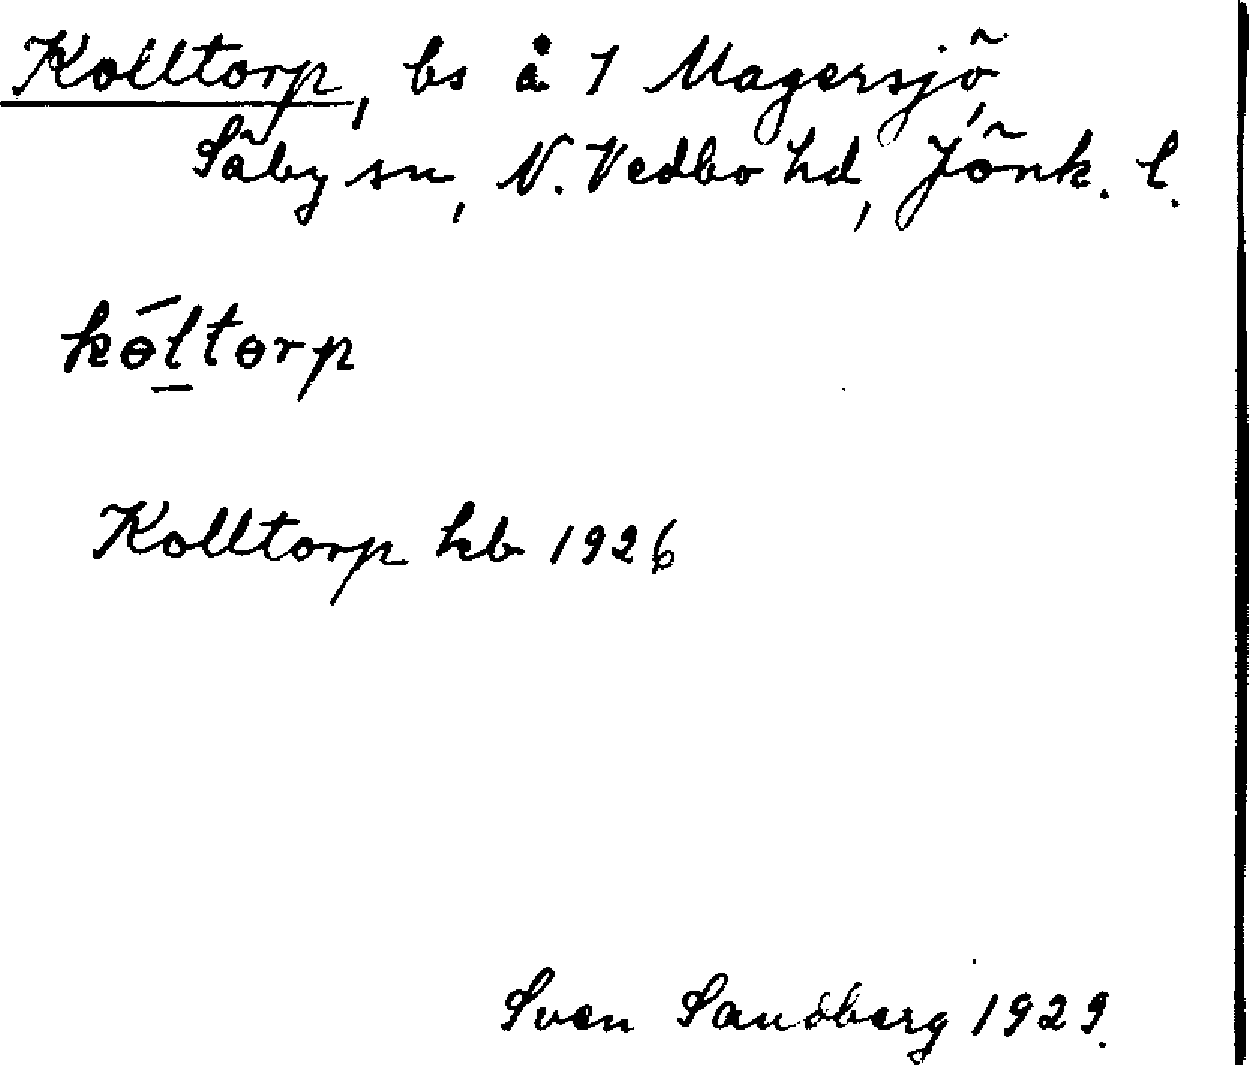 Kolltorp, bs å 1 Magersjö,
Säby sn, N. Vedbo hd, Jönk. l.
kɵ́l̲tɵrp
Kolltorp kb 1926
Sven Sandberg 1929.